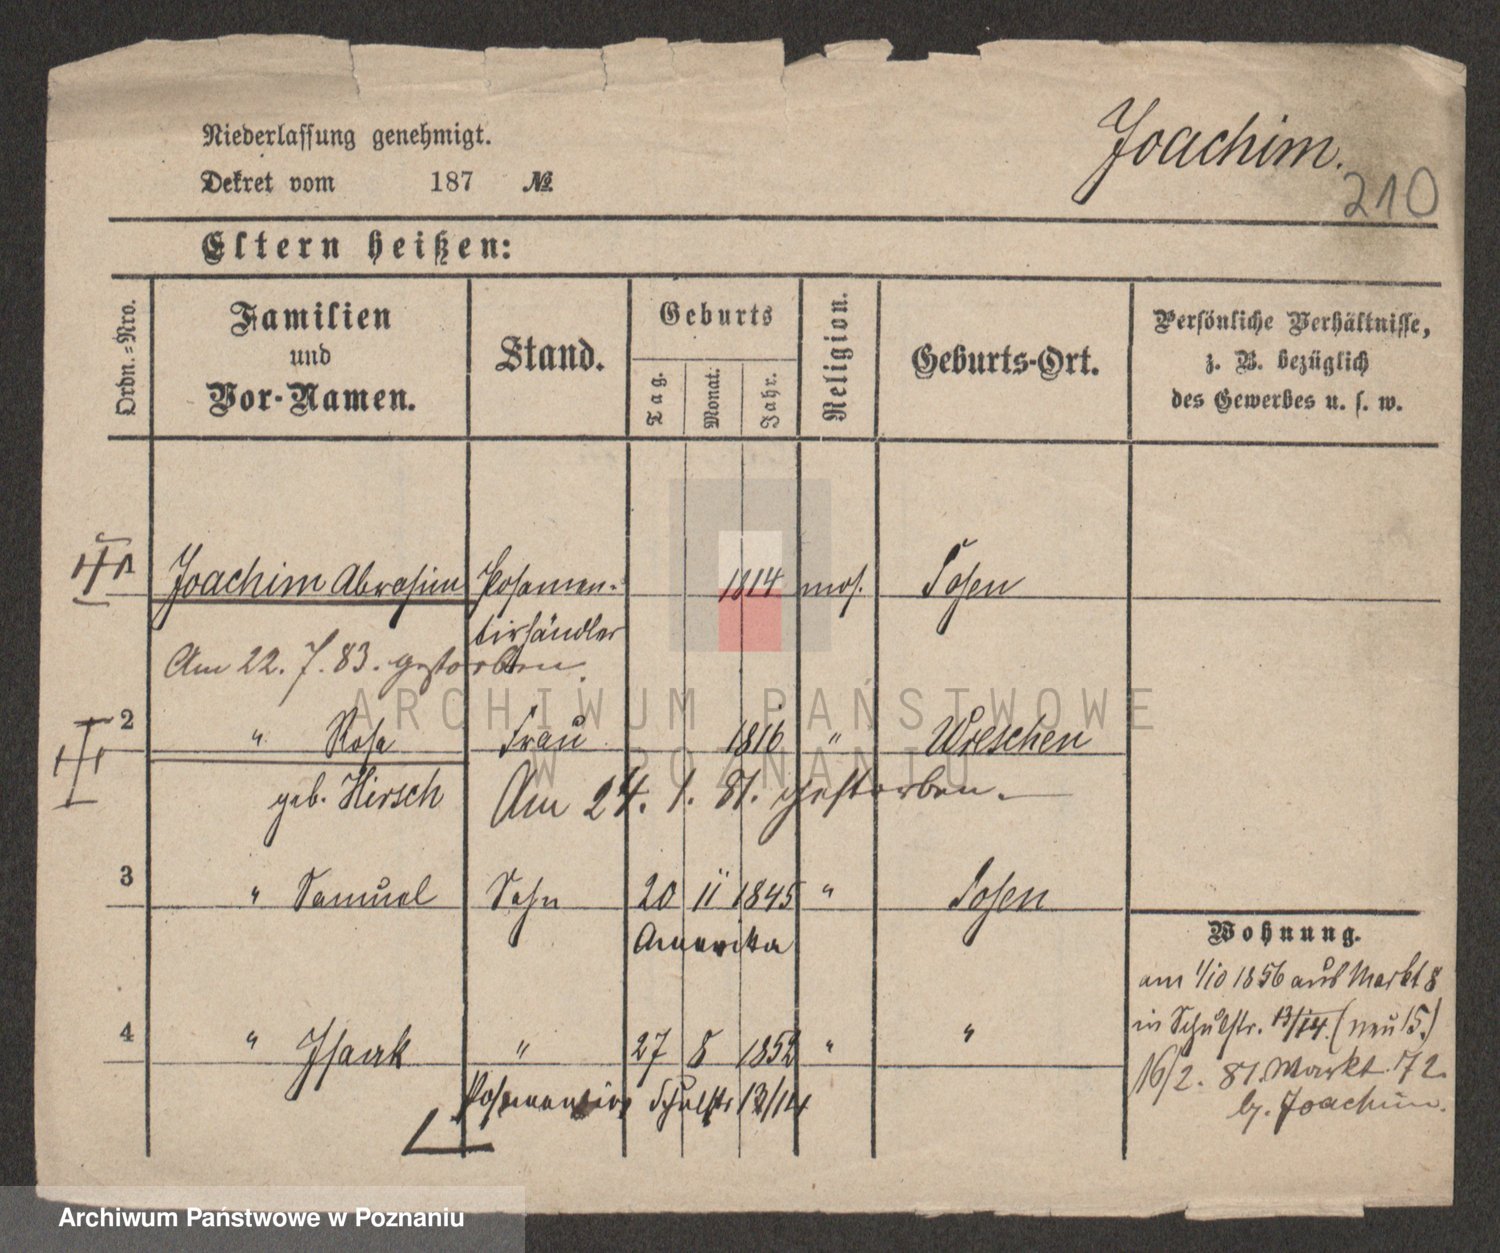 Joachim.
Niederlassung genehmigt.
Dekret vom 187 №
210
Eltern heißen:
Ordn.-Nro.
Familien und Vor-Namen.
Stand.
Geburts
Tag.
Monat.
Jahr.
Religion.
Geburts-Ort.
Persönliche Verhältnisse, z. B. bezüglich des Gewerbes u. s. w.
1 Joachim Abrahim Posamen- 1814 mos. Posen
tirhändler
Am 22. 7. 83. gestorben.
2 " Rosa Frau 1816 " Wreschen
geb. Hirsch Am 24. 1. 81. gestorben.
3 " Samuel Sohn 20 11 1845 " Posen
Amerika
Wohnung.
am 1/10 1856 aus Markt 8
in Schulstr. 13/14. (neu 15.)
4 " Isaak " 27 8 1852 " "
16/2. 81. Markt 72
Posamentir Schulstr 13/14
by. Joachim.
ARCHIWUM PAŃSTWOWE
W POZNANIU
Archiwum Państwowe w Poznaniu